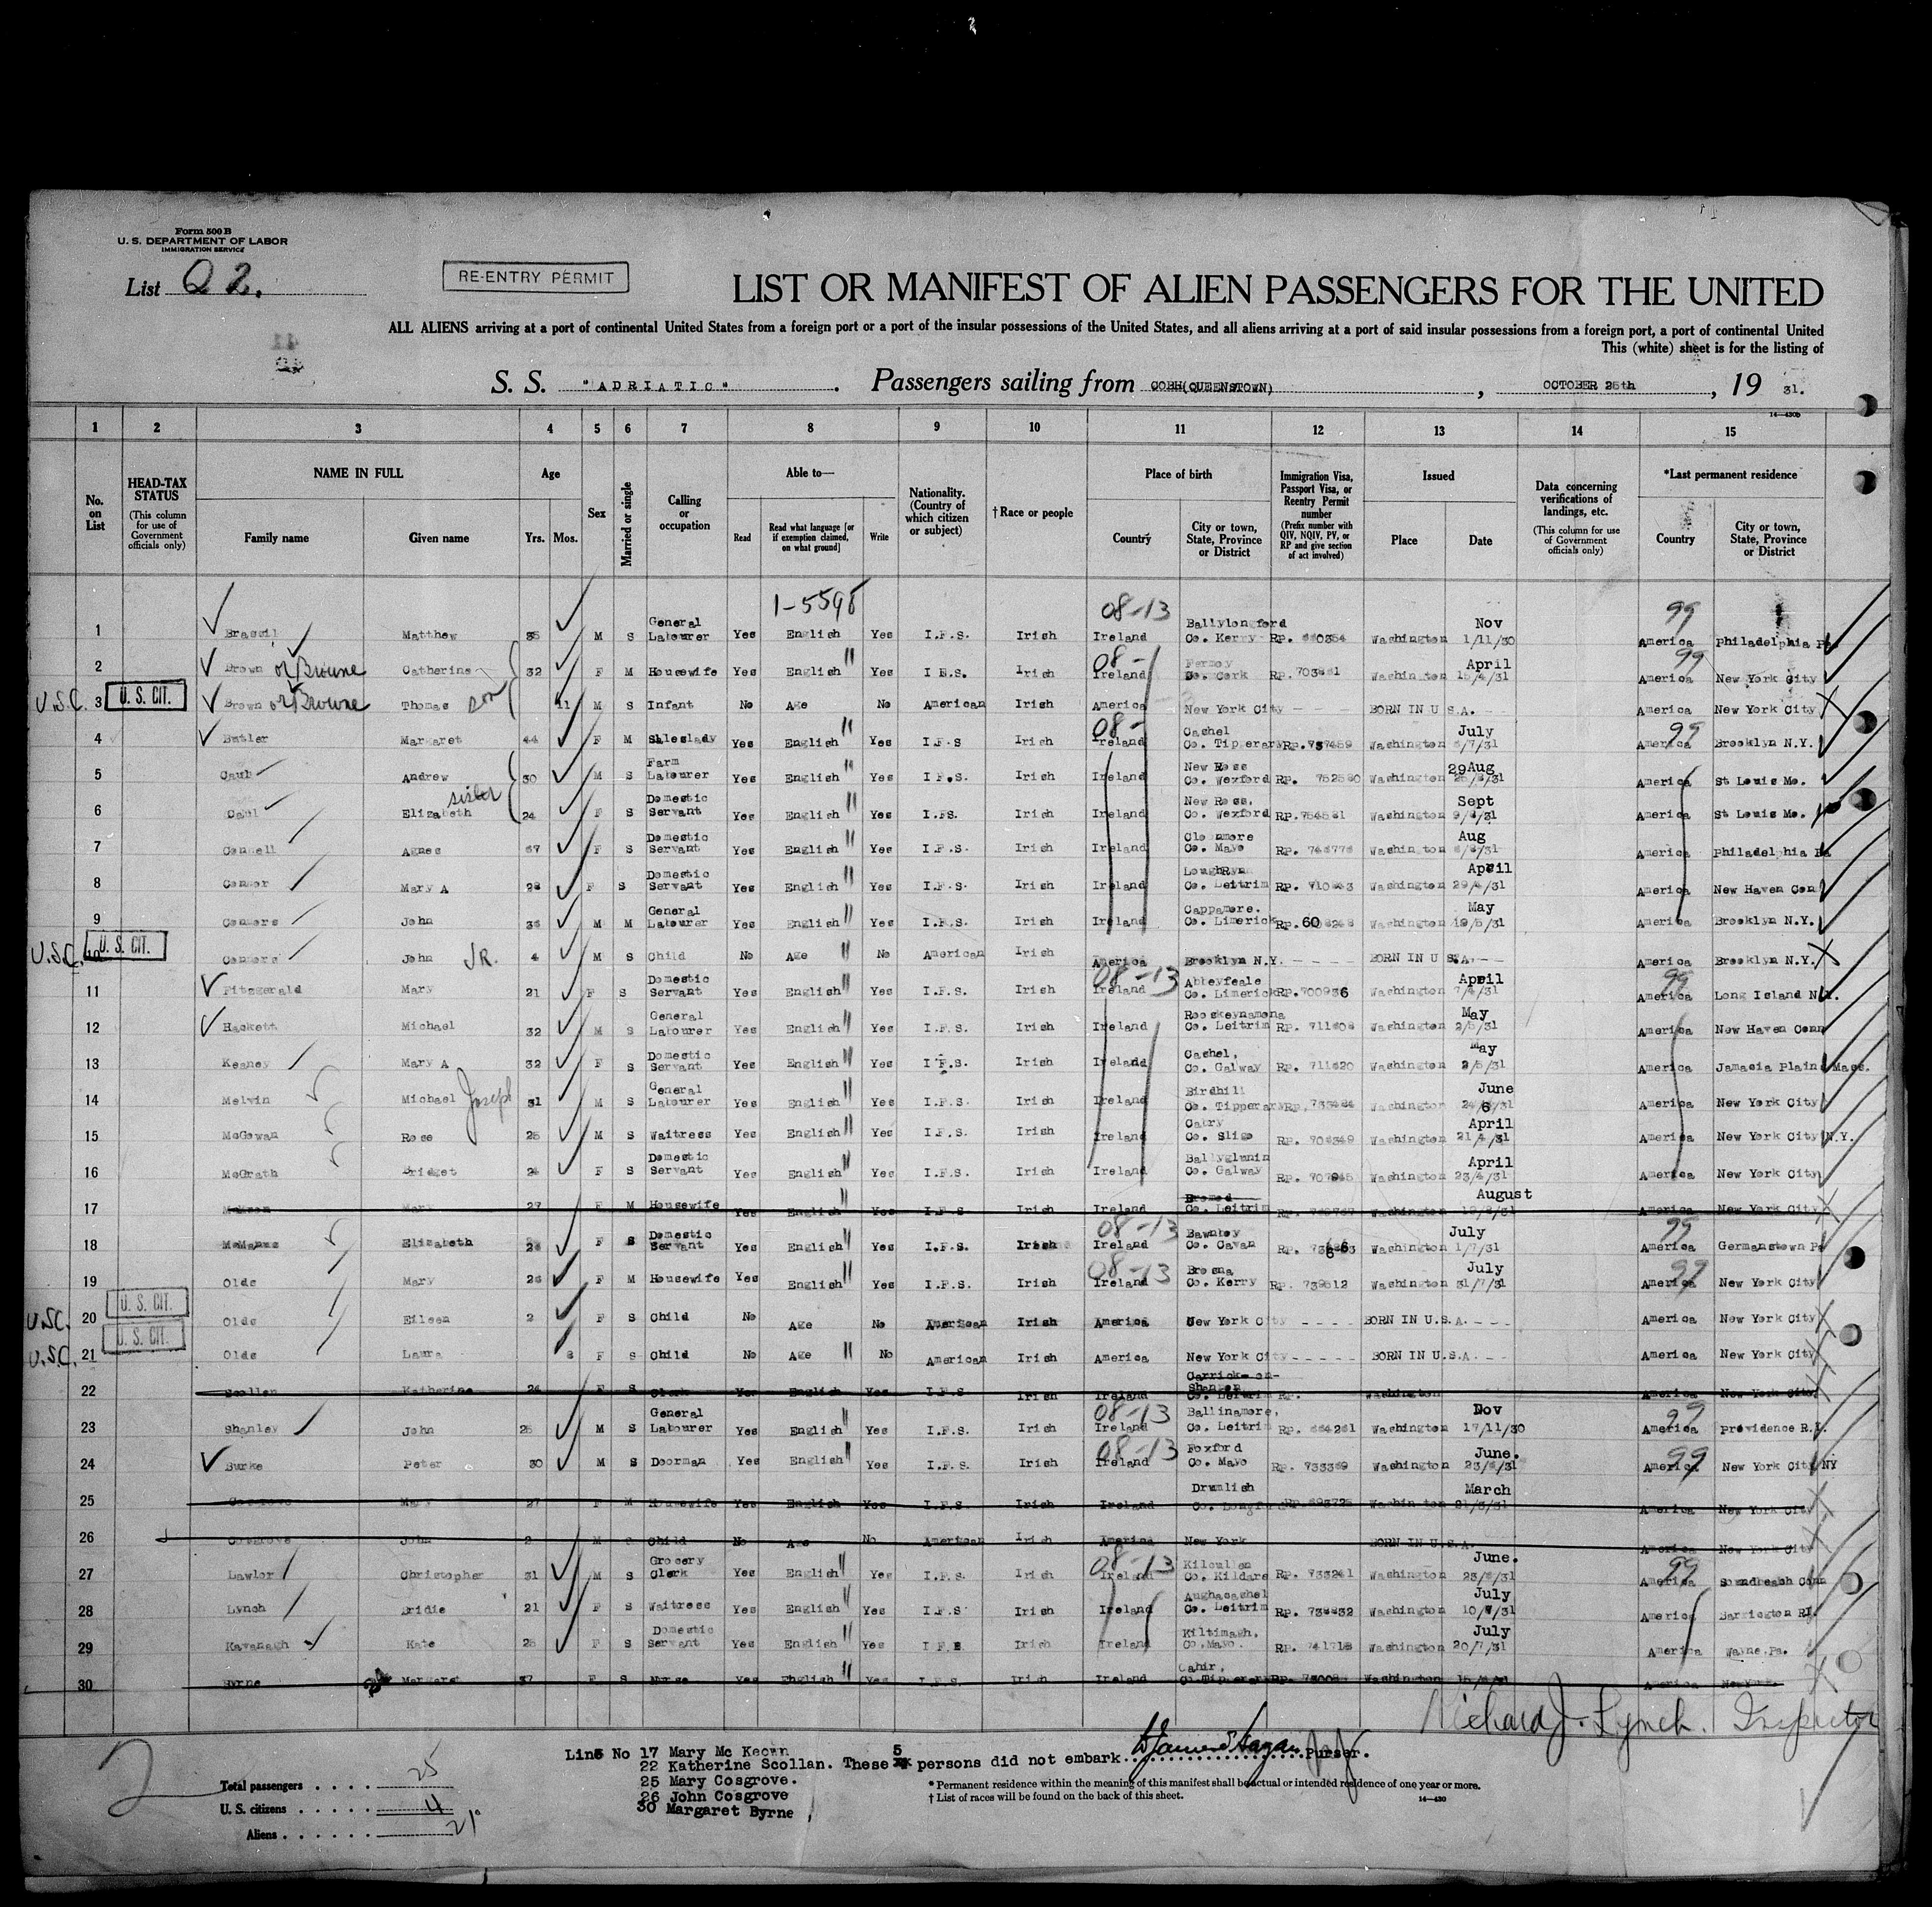 Form 500 B
U. S. DEPARTMENT OF LABOR
IMMIGRATION SERVICE
List Q 2.
RE-ENTRY PERMIT
LIST OR MANIFEST OF ALIEN PASSENGERS FOR THE UNITED
ALL ALIENS arriving at a port of continental United States from a foreign port or a port of the insular possessions of the United States, and all aliens arriving at a port of said insular possessions from a foreign port, a port of continental United
This (white) sheet is for the listing of
S. S. "ADRIATIC". Passengers sailing from COBH(QUEENSTOWN), OCTOBER 25th, 19 31.
14—430b
1 2 3 4 5 6 7 8 9 10 11 12 13 14 15
No. on List
HEAD-TAX STATUS (This column for use of Government officials only)
NAME IN FULL Family name Given name
Age Yrs. Mos.
Sex
Married or single
Calling or occupation
Able to— Read Read what language [or if exemption claimed, on what ground] Write
Nationality. (Country of which citizen or subject)
†Race or people
Place of birth Country City or town, State, Province or District
Immigration Visa, Passport Visa, or Reentry Permit number (Prefix number with QIV, NQIV, PV, or RP and give section of act involved)
Issued Place Date
Data concerning verifications of landings, etc. (This column for use of Government officials only)
*Last permanent residence Country City or town, State, Province or District
1-5595 08-13 99
1 Brassil Matthew 35 M S General Labourer Yes English Yes I.F.S. Irish Ireland Ballylongford Co. Kerry RP. Washington Nov 1/11/30 America Philadelphia Pa
2 Brown or Browne Catherine 32 F M Housewife Yes English Yes I F.S. Irish 08- Ireland Fermoy Co. Cork RP. Washington April 15/4/31 99 America New York City
U.S.C. 3 U. S. CIT. Brown or Browne Thomas son 11 M S Infant No Age No American Irish America New York City BORN IN U S.A. America New York City
4 Butler Margaret 44 F M Saleslady Yes English Yes I.F.S Irish 08- Ireland Cashel Co. Tipperary RP.737459 Washington July /7/31 99 America Brooklyn N.Y.
5 Caul Andrew 30 M S Farm Labourer Yes English Yes I F.S. Irish Ireland New Ross Co. Wexford RP. Washington 29 Aug America St Louis Mo.
6 Caul Elizabeth sister 24 F S Domestic Servant Yes English Yes I.FS. Irish Ireland New Ross. Co. Wexford RP. Washington Sept America St Louis Mo.
7 Connell Agnes F S Domestic Servant Yes English Yes I.F.S. Irish Ireland Co. Mayo RP. Washington Aug America Philadelphia Pa
8 Connor Mary A 28 F S Domestic Servant Yes English Yes I.F.S. Irish Ireland LoughRyn Co. Leitrim RP. Washington April 29/4/31 America New Haven Con
9 Connors John 35 M M General Labourer Yes English Yes I.F.S. Irish Ireland Cappamore. Co. Limerick RP. Washington May 19/5/31 America Brooklyn N.Y.
U.S.C. 10 U. S. CIT. Connors John JR. 4 M S Child No Age No American Irish America Brooklyn N.Y. BORN IN U S.A. America Brooklyn N.Y.
11 Fitzgerald Mary 21 F S Domestic Servant Yes English Yes I.F.S. Irish 08-13 Ireland Abbeyfeale Co. Limerick RP.700936 Washington April 7/4/31 99 America Long Island N.Y.
12 Hackett Michael 32 M S General Labourer Yes English Yes I.F.S. Irish Ireland Rooskeynamona Co. Leitrim RP. Washington May 2/5/31 America New Haven Conn
13 Keaney Mary A 32 F S Domestic Servant Yes English Yes I.F.S. Irish Ireland Cashel, Co. Galway RP. Washington May 2/5/31 America Jamacia Plain Mass.
14 Melvin Michael Joseph 31 M S General Labourer Yes English Yes I.F.S. Irish Ireland Birdhill Co. Tipperary RP. Washington June 24/6/31 America New York City
15 McGowan Rose 25 M S Waitress Yes English Yes I.F.S. Irish Ireland Co. Sligo RP. Washington April 21/4/31 America New York City N.Y.
16 McGrath Bridget 24 F S Domestic Servant Yes English Yes I.F.S. Irish Ireland Ballyglunin Co. Galway RP. Washington April 23/4/31 America New York City
17 Mary 27 F M Housewife Yes English Yes I.F.S Irish Ireland Co. Leitrim RP. Washington August America New York City
18 McManus Elizabeth F S Domestic Servant Yes English Yes I.F.S. Irish 08-13 Ireland Bawnboy Co. Cavan RP. Washington July 1/7/31 99 America Germanstown Pa
19 Olds Mary F M Housewife Yes English Yes I.F.S. Irish 08-13 Ireland Brosna Co. Kerry RP. Washington July 31/7/31 99 America New York City
U.S.C. 20 U. S. CIT. Olds Eileen 2 F S Child No Age No American Irish America New York City BORN IN U.S.A. America New York City
U.S.C. 21 U. S. CIT. Olds Laura 8 F S Child No Age No American Irish America New York City BORN IN U.S.A America New York City
22 Scollan Katherine 24 F S Clerk Yes English Yes I.F.S Irish Ireland Carrick-on-Shannon Co. Leitrim RP. Washington America New York City
23 Shanley John 25 M S General Labourer Yes English Yes I.F.S. Irish 08-13 Ireland Ballinamore, Co. Leitrim RP. Washington Nov 17/11/30 99 America Providence R.I.
24 Burke Peter 30 M S Doorman Yes English Yes I.F.S. Irish 08-13 Ireland Foxford Co. Mayo RP. 733369 Washington June. 23/6/31 99 America New York City NY
25 Cosgrove Mary 27 F M Housewife Yes English Yes I.F.S Irish Ireland Drumlish Co. Longford RP. Washington March America New York City
26 Cosgrove John 2 M S Child No Age No American Irish America New York BORN IN U.S.A. America New York City
27 Lawlor Christopher 31 M S Grocery Clerk Yes English Yes I.F.S. Irish 08-13 Ireland Kilcullen Co. Kildare RP. Washington June. 23/6/31 99 America Soundbeach Conn
28 Lynch Bridie 21 F S Waitress Yes English Yes I.F.S Irish Ireland Aughacashel Co. Leitrim RP. Washington July 10/7/31 America Barrington RI.
29 Kavanagh Kate 25 F S Domestic Servant Yes English Yes Irish Ireland Kiltimagh. Co.Mayo. RP. Washington July 20/7/31 America Wayne Pa.
30 Byrne Margaret 37 F S Nurse Yes English Yes I.F.S. Irish Ireland Cahir, Co.Tipperary RP. Washington America New York.
Richard J. Lynch. Inspector
Line No 17 Mary Mc Keown
22 Katherine Scollan. These 5 persons did not embark Purser.
25 Mary Cosgrove.
26 John Cosgrove
30 Margaret Byrne
2
Total passengers 25
U. S. citizens 4
Aliens 21
* Permanent residence within the meaning of this manifest shall be actual or intended residence of one year or more.
† List of races will be found on the back of this sheet.
14—430